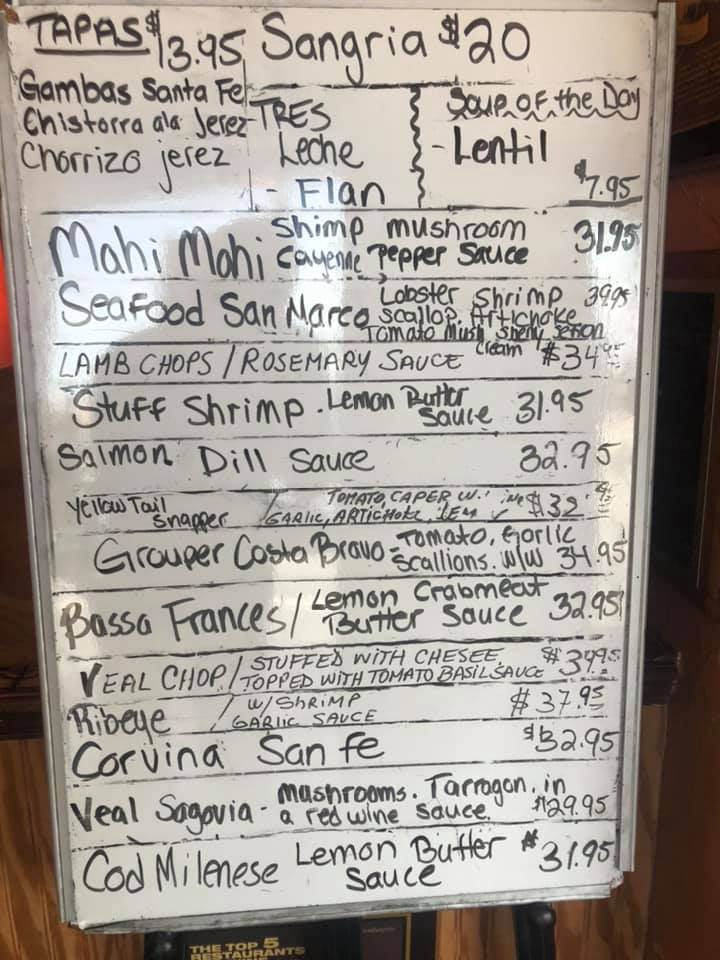 TAPAS $13.95 Sangria $20
Gambas Santa Fe
Chistorra ala Jerez
Chorrizo jerez
TRES
Leche
- Flan
Soup of the Day
- Lentil
$7.95
Mahi Mahi Shimp mushroom Cayenne Pepper Sauce 31.95
Seafood San Marco Lobster Shrimp 39.95
Scallop, Artichoke
Tomato Mush Sherry
Cream
LAMB CHOPS / ROSEMARY SAUCE $34.95
Stuff Shrimp . Lemon Butter Sauce 31.95
Salmon Dill Sauce 32.95
Yellow Tail Snapper / TOMATO, CAPER W. $32.95
GARLIC, ARTICHOKE,
Grouper Costa Bravo = Tomato, Gorlic Scallions. W/W 34.95
Bassa Frances / Lemon Crabmeat Butter Sauce 32.95
VEAL CHOP / STUFFED WITH CHESEE, TOPPED WITH TOMATO BASIL SAUCE $34.95
Ribeye / W/ SHRIMP GARLIC SAUCE $37.95
Corvina San fe $32.95
Veal Sagovia - Mushrooms. Tarragon, in a red wine sauce. $29.95
Cod Milenese Lemon Butter Sauce $31.95
THE TOP 5
RESTAURANTS